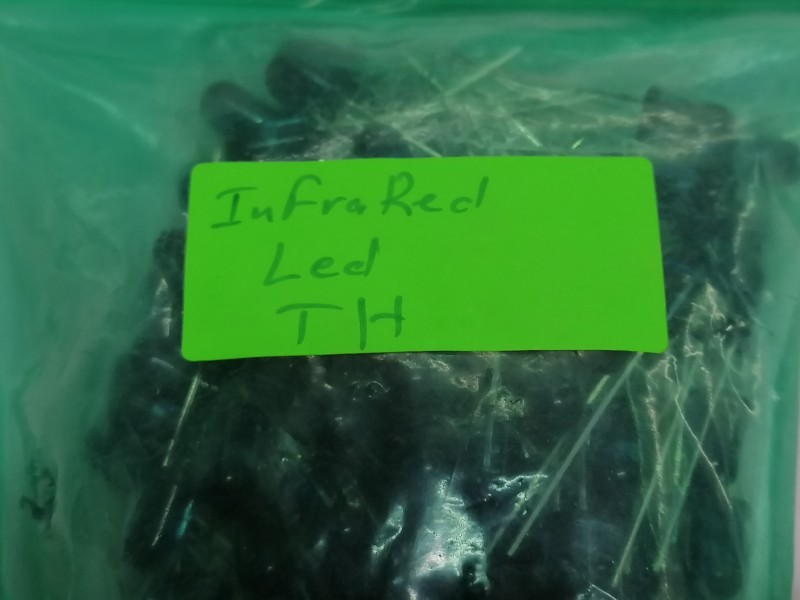 InfraRed
Led
TH